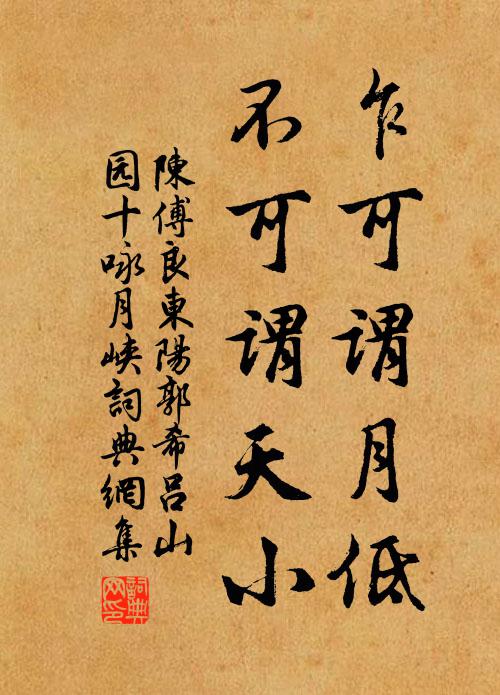 乍可谓月低
不可谓天小
陳傅良東陽郭希吕山
园十咏月峡詞典網集
詞典
网印